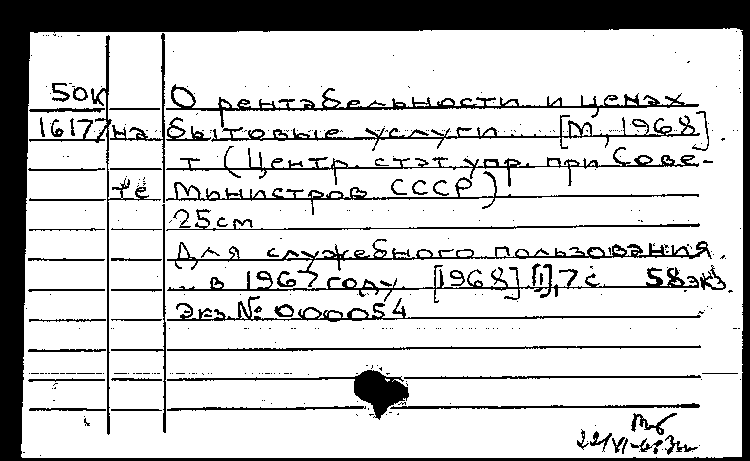 50к О рентабельности и ценах
16177 на бытовые услуги... [М., 1968].
т (Центр. стат. упр. при Сове-
те Министров СССР).
25см
Для служебного пользования.
... в 1967 году. [1968] [1], 7 с. 58 экз.
Экз. № 000054